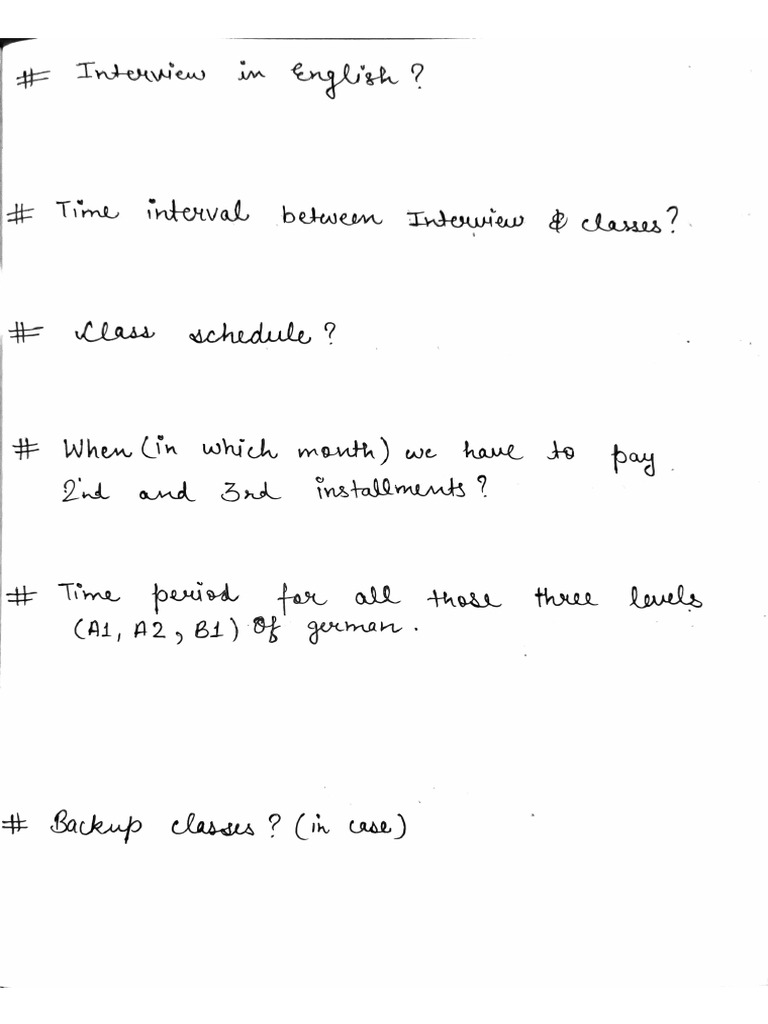 # Interview in English ?
# Time interval between Interview & classes?
# Class schedule ?
# When (in which month) we have to pay
2nd and 3rd installments ?
# Time period for all those three levels
(A1, A2, B1) of german.
# Backup classes ? (in case)